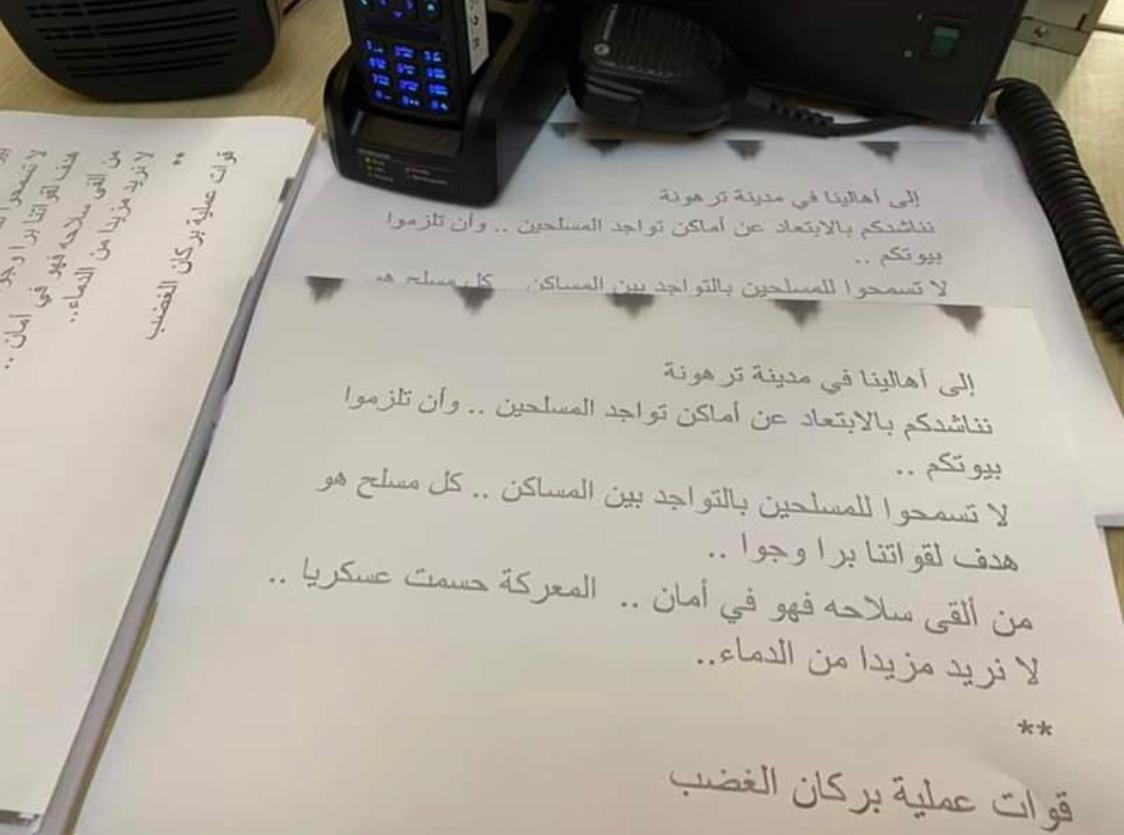 إلى أهالينا في مدينة ترهونة
نناشدكم بالابتعاد عن أماكن تواجد المسلحين .. وأن تلزموا
بيوتكم ..
لا تسمحوا للمسلحين بالتواجد بين المساكن .. كل مسلح هو
إلى أهالينا في مدينة ترهونة
نناشدكم بالابتعاد عن أماكن تواجد المسلحين .. وأن تلزموا
بيوتكم ..
لا تسمحوا للمسلحين بالتواجد بين المساكن .. كل مسلح هو
هدف لقواتنا برا وجوا ..
من ألقى سلاحه فهو في أمان .. المعركة حسمت عسكريا ..
لا نريد مزيدا من الدماء..
**
قوات عملية بركان الغضب
لا تسمحوا
هدف لقواتنا برا وجو
من ألقى سلاحه فهو في أمان ..
لا نريد مزيدا من الدماء..
**
قوات عملية بركان الغضب